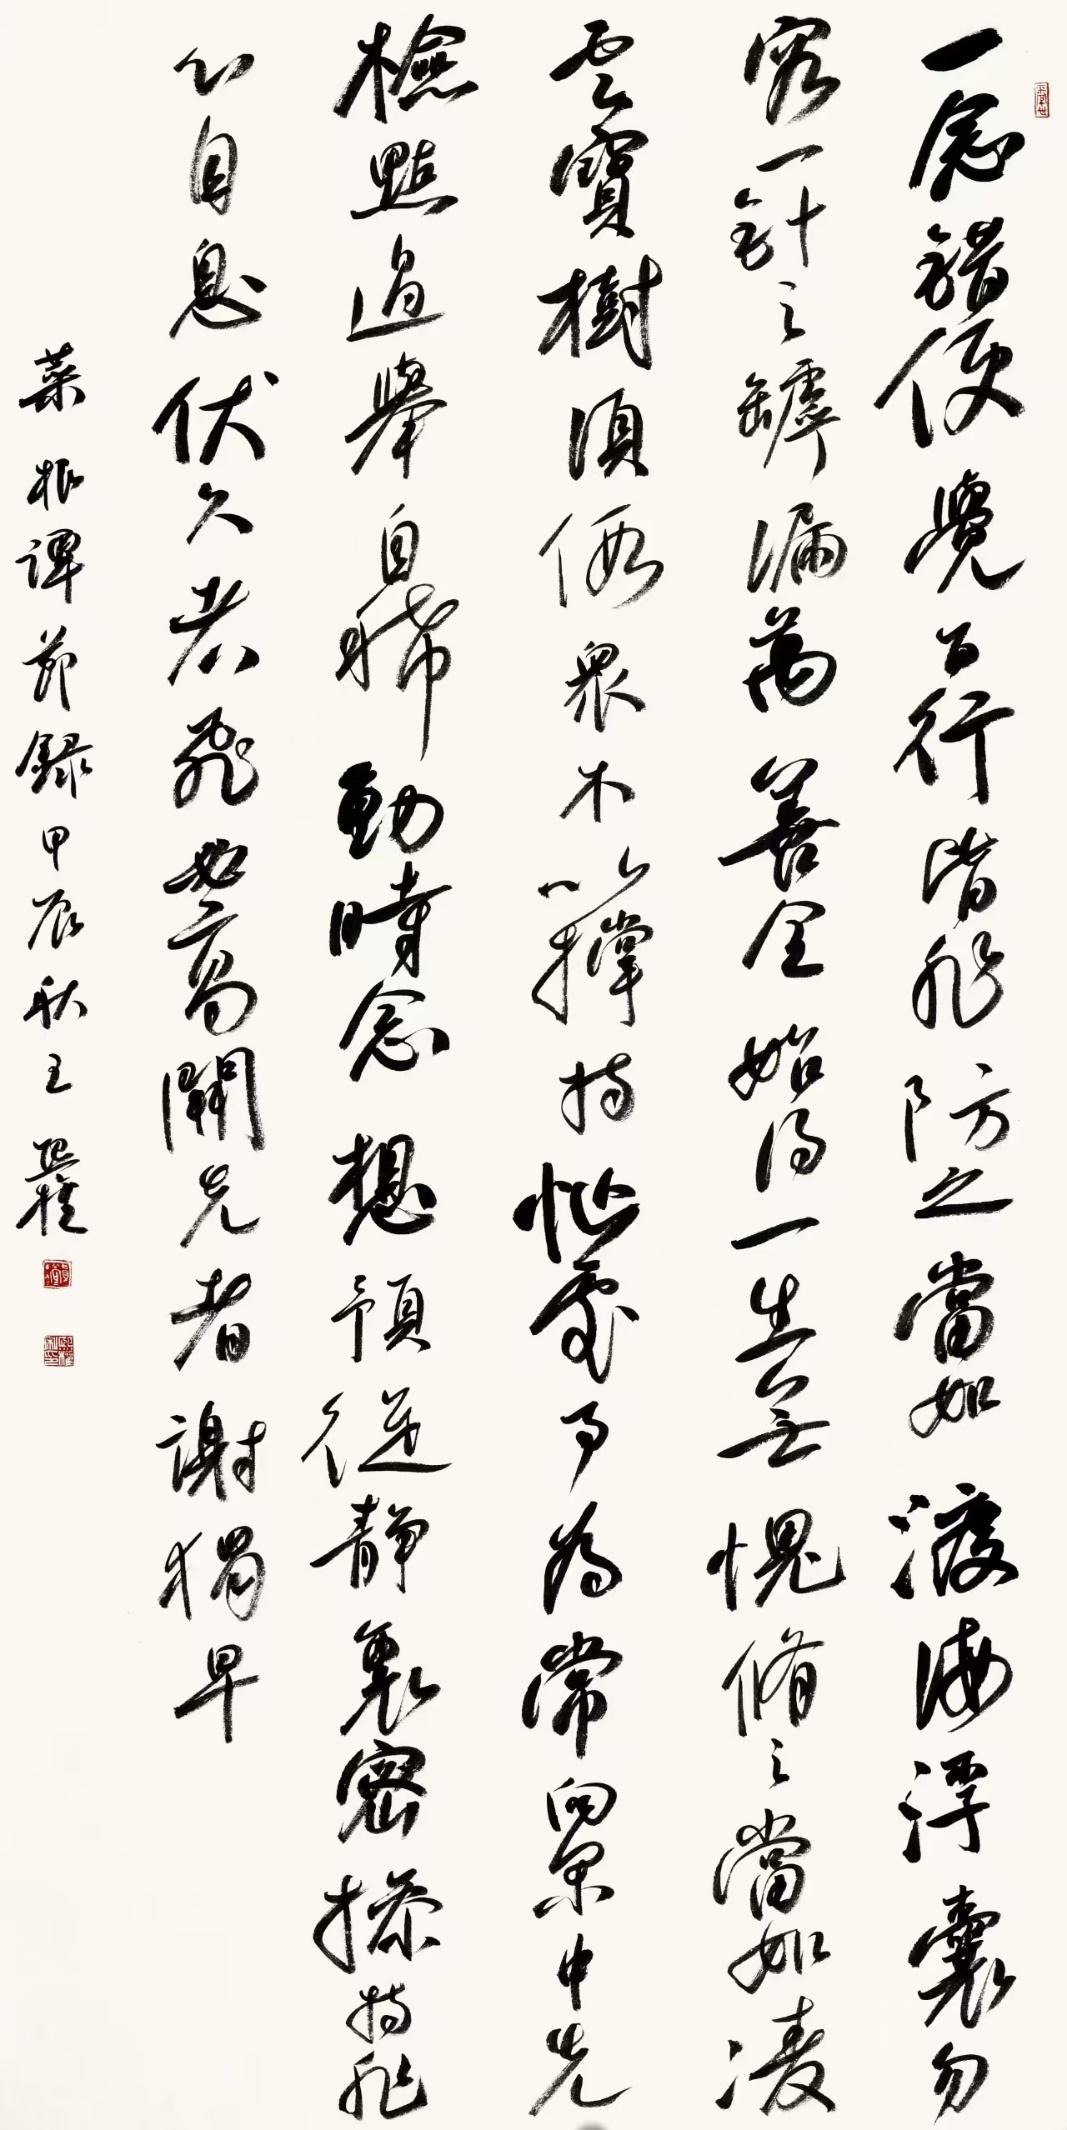 一念錯便覺百行皆非防之當如渡海浮囊勿
容一針之罅漏萬善全始得一生無愧脩之當如凌
雲寶樹須假眾木以撐持忙處事為常向閑中先
檢點過舉自稀動時念想預從靜裏密操持非
心自息伏久者飛必高開先者謝獨早
菜根譚節錄甲辰秋王